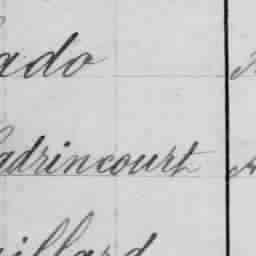 ado
adrincourt
illard